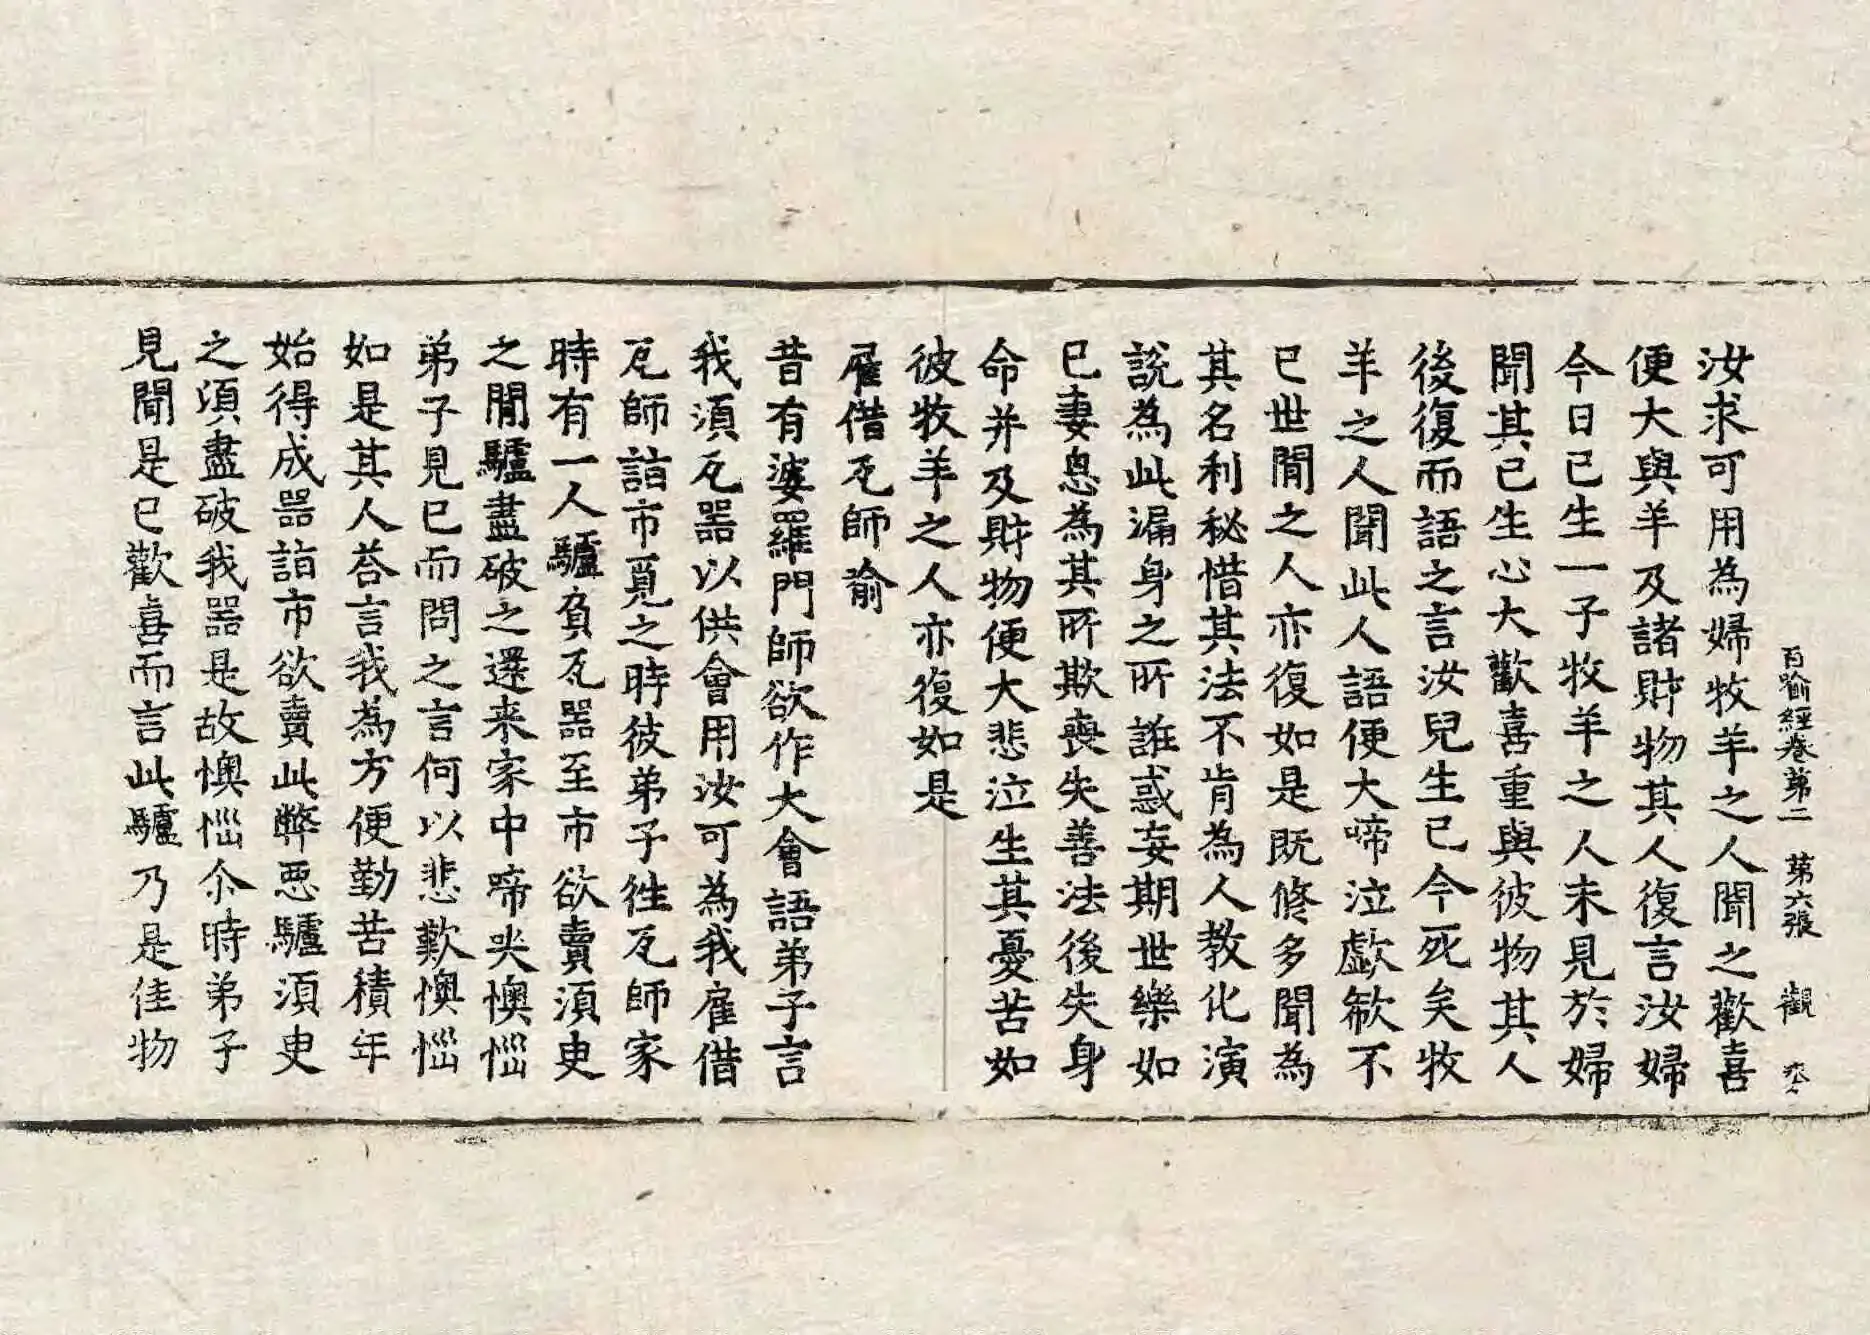 百喻經卷第二 第六張 觀
汝求可用為婦牧羊之人聞之歡喜
便大與羊及諸財物其人復言汝婦
今日已生一子牧羊之人未見於婦
聞其已生心大歡喜重與彼物其人
後復而語之言汝兒生已今死矣牧
羊之人聞此人語便大啼泣歔欷不
已世間之人亦復如是既修多聞為
其名利秘惜其法不肯為人教化演
說為此漏身之所誑惑妄期世樂如
已妻息為其所欺喪失善法後失身
命并及財物便大悲泣生其憂苦如
彼牧羊之人亦復如是
雇借瓦師喻
昔有婆羅門師欲作大會語弟子言
我須瓦器以供會用汝可為我雇借
瓦師詣市覓之時彼弟子徃瓦師家
時有一人驢負瓦器至市欲賣須臾
之間驢盡破之還来家中啼哭懊惱
弟子見已而問之言何以悲歎懊惱
如是其人荅言我為方便勤苦積年
始得成器詣市欲賣此弊惡驢須臾
之須盡破我器是故懊惱尒時弟子
見聞是已歡喜而言此驢乃是佳物